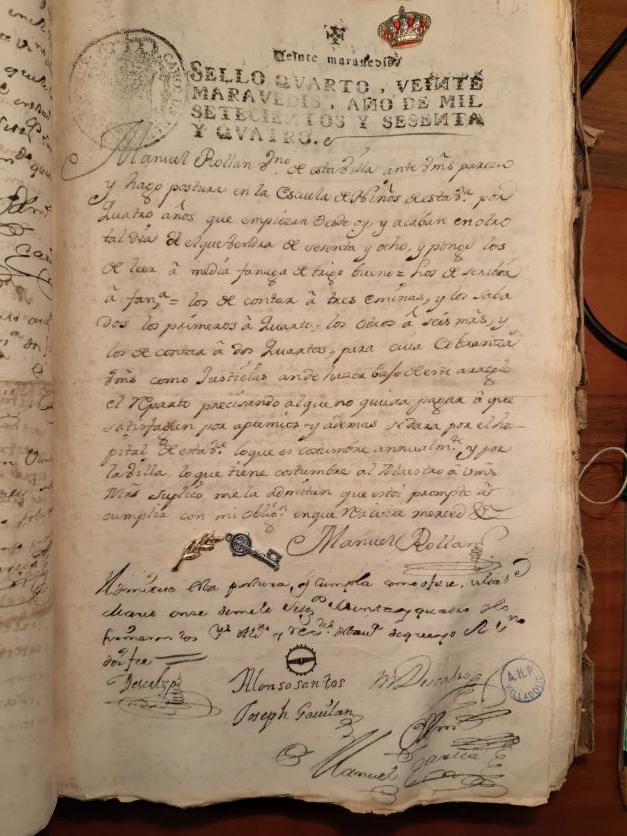 Veinte maravedis
SELLO QVARTO, VEINTE
MARAVEDIS, AÑO DE MIL
SETECIENTOS Y SESENTA
Y QVATRO.
Manuel Rollan Vno. de esta Villa ante Vms parezco
y hago postura en la Escuela de Niños de esta Va. por
quatro años que empiezan desde oy, y acaban en otro
tal dia de el que vendra de sesenta y ocho, y pongo los
de leer â media fanega de trigo bueno = los de escribir
â fanga = los de contar â tres eminas, y los saba
dos los primeros â quarto, los otros â seis mrs, y
los de contar â dos quartos, para cuia cobranza
Vms como Justicias an de hazer bajo de este arreglo
el Reparto precisando al que no quiera pagar â que
satisfagan por apremio y ademas se dara por el ho-
pital de esta Va. lo que es costumbre annualmte. y por
la Villa lo que tiene costumbre al Maestro â Vms
suplico me la admitan que estoi prompto â
cumplir con mi obligon. en que recivire merced &
Manuel Rollan
Admitese esta postura, y cumpla como ofreze, Villa
Marzo onze de mil y quatro
firmaron los
doi fee
Descalzo
Alonso santos
Descalzo
Joseph
Manuel Garcia
A.H.P.
VALLADOLID